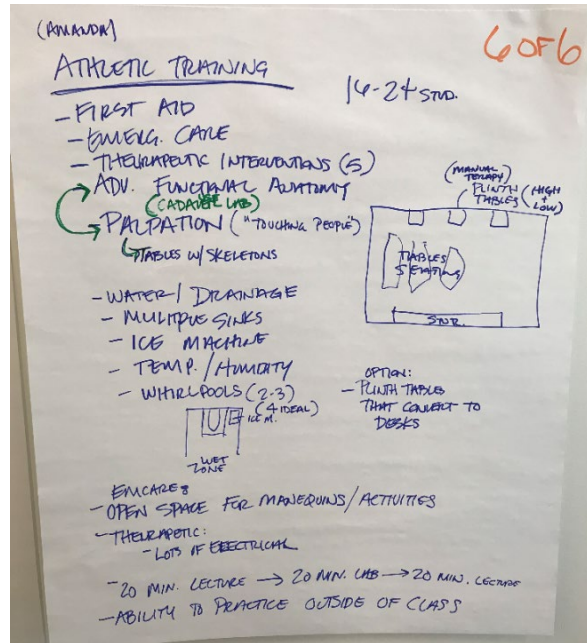 (AMANDA)
6 OF 6
ATHLETIC TRAINING
16-24 STUD.
- FIRST AID
- EMERG. CARE
- THEURAPEUTIC INTERVENTIONS (5)
ADV. FUNCTIONAL ANATOMY
(CADAVER LAB)
PALPATION ("TOUCHING PEOPLE")
TABLES W/ SKELETONS
(MANUAL TERAPY)
PLINTH TABLES (HIGH + LOW)
TABLES
SEATING
- WATER / DRAINAGE
- MULITPLE SINKS
- ICE MACHINE
- TEMP. / HUMIDITY
- WHIRLPOOLS (2-3)
(4 IDEAL)
ICE M.
WET ZONE
OPTION:
- PLINTH TABLES
THAT CONVERT TO
DESKS
EMCARE:
- OPEN SPACE FOR MANEQUINS/ACTIVITIES
- THEURAPETIC:
- LOTS OF ELECTRICAL
- 20 MIN. LECTURE → 20 MIN. LAB → 20 MIN. LECTURE
- ABILITY TO PRACTICE OUTSIDE OF CLASS